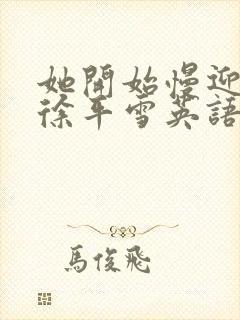 她開始慢迎
徐平雪英語
馬俊飛